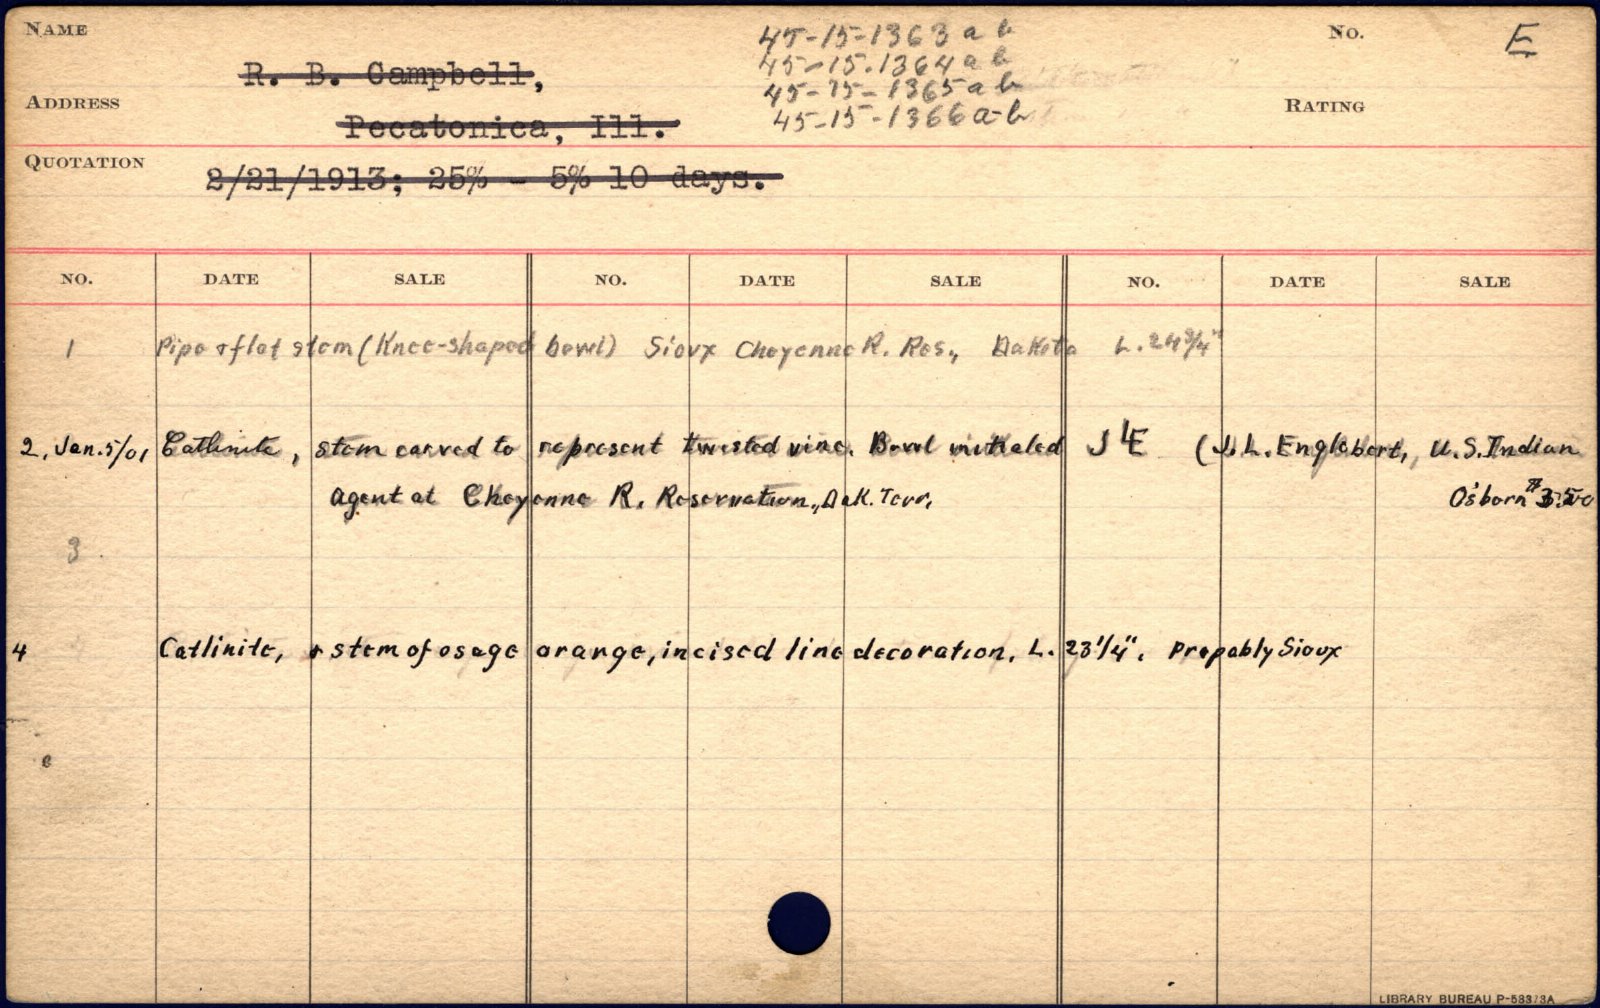 NAME
R. B. Campbell,
45-15-1363 a b
45-15-1364 a b
45-15-1365 a b
45-15-1366 a-b
NO. E
ADDRESS
Pecatonica, Ill.
RATING
QUOTATION
2/21/1913; 25% - 5% 10 days.
NO. DATE SALE NO. DATE SALE NO. DATE SALE
1 Pipe & flat stem (Knee-shaped bowl) Sioux Cheyenne R. Res., Dakota L. 24 3/4"
2. Jan. 5/01 Catlinite, stem carved to represent twisted vine. Bowl initialed JLE (J. L. Englebert, U.S. Indian
Agent at Cheyenne R. Reservation., Dak. Terr,
Osborn
3
4 Catlinite, & stem of osage orange, incised line decoration. L. 23 1/4". Propably Sioux
LIBRARY BUREAU P-58373A